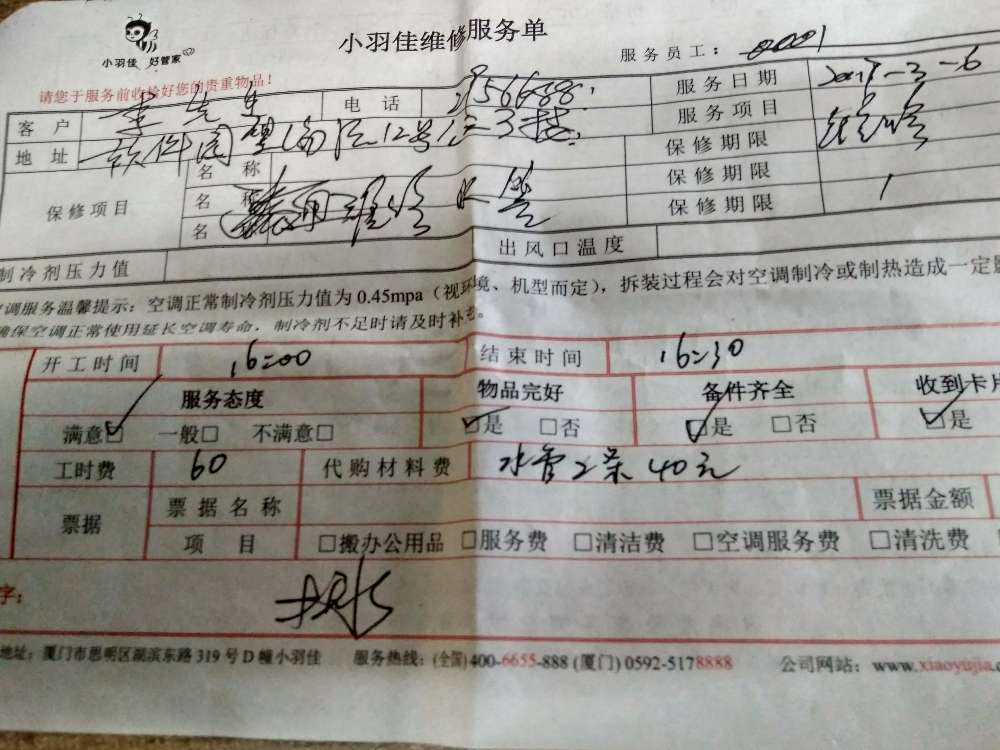 小羽佳 好管家
小羽佳维修服务单
服务员工: 0001
请您于服务前收捡好您的贵重物品!
客户 李先生 电话 服务日期
地址 软件园望海路12号 3楼 服务项目 维修
保修项目 名称 保修期限
名称 保修期限
名 保修期限
制冷剂压力值 出风口温度
空调服务温馨提示: 空调正常制冷剂压力值为 0.45mpa (视环境、机型而定), 拆装过程会对空调制冷或制热造成一定
确保空调正常使用延长空调寿命, 制冷剂不足时请及时补充。
开工时间 16:00 结束时间 16:30
服务态度 物品完好 备件齐全 收到卡片
满意☑ 一般□ 不满意□ ☑是 □否 ☑是 □否 ☑是
工时费 60 代购材料费 水管2条40元
票据 票据名称 票据金额
项目 □搬办公用品 □服务费 □清洁费 □空调服务费 □清洗费
字:
地址: 厦门市思明区湖滨东路 319 号 D 幢小羽佳 服务热线: (全国) 400-6655-888 (厦门) 0592-5178888 公司网站: www.xiaoyujia.c